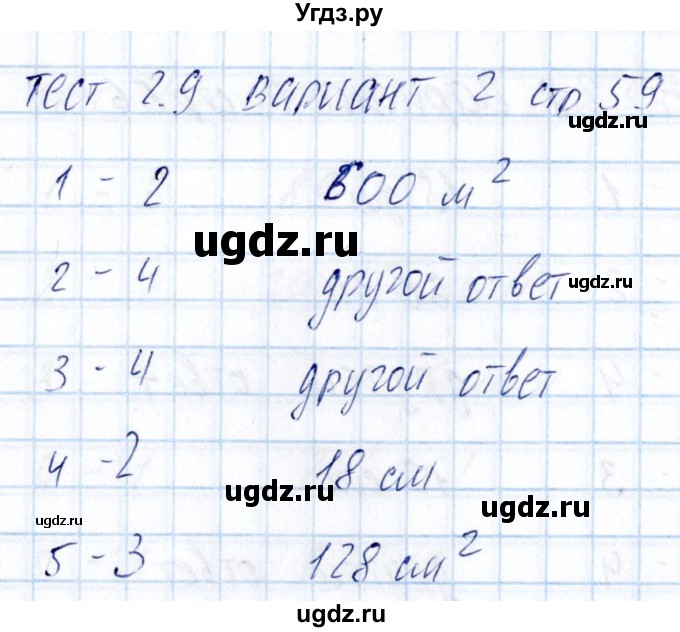 Угдз.ру
тест 2.9 вариант 2 стр 59
1 - 2 500 м²
ugdz.ru
2 - 4 другой ответ
ugdz.ru
3 - 4 другой ответ
4 - 2 18 см
ugdz.ru ugdz.ru
ugdz.ru
5 - 3 128 см²
ugdz.ru